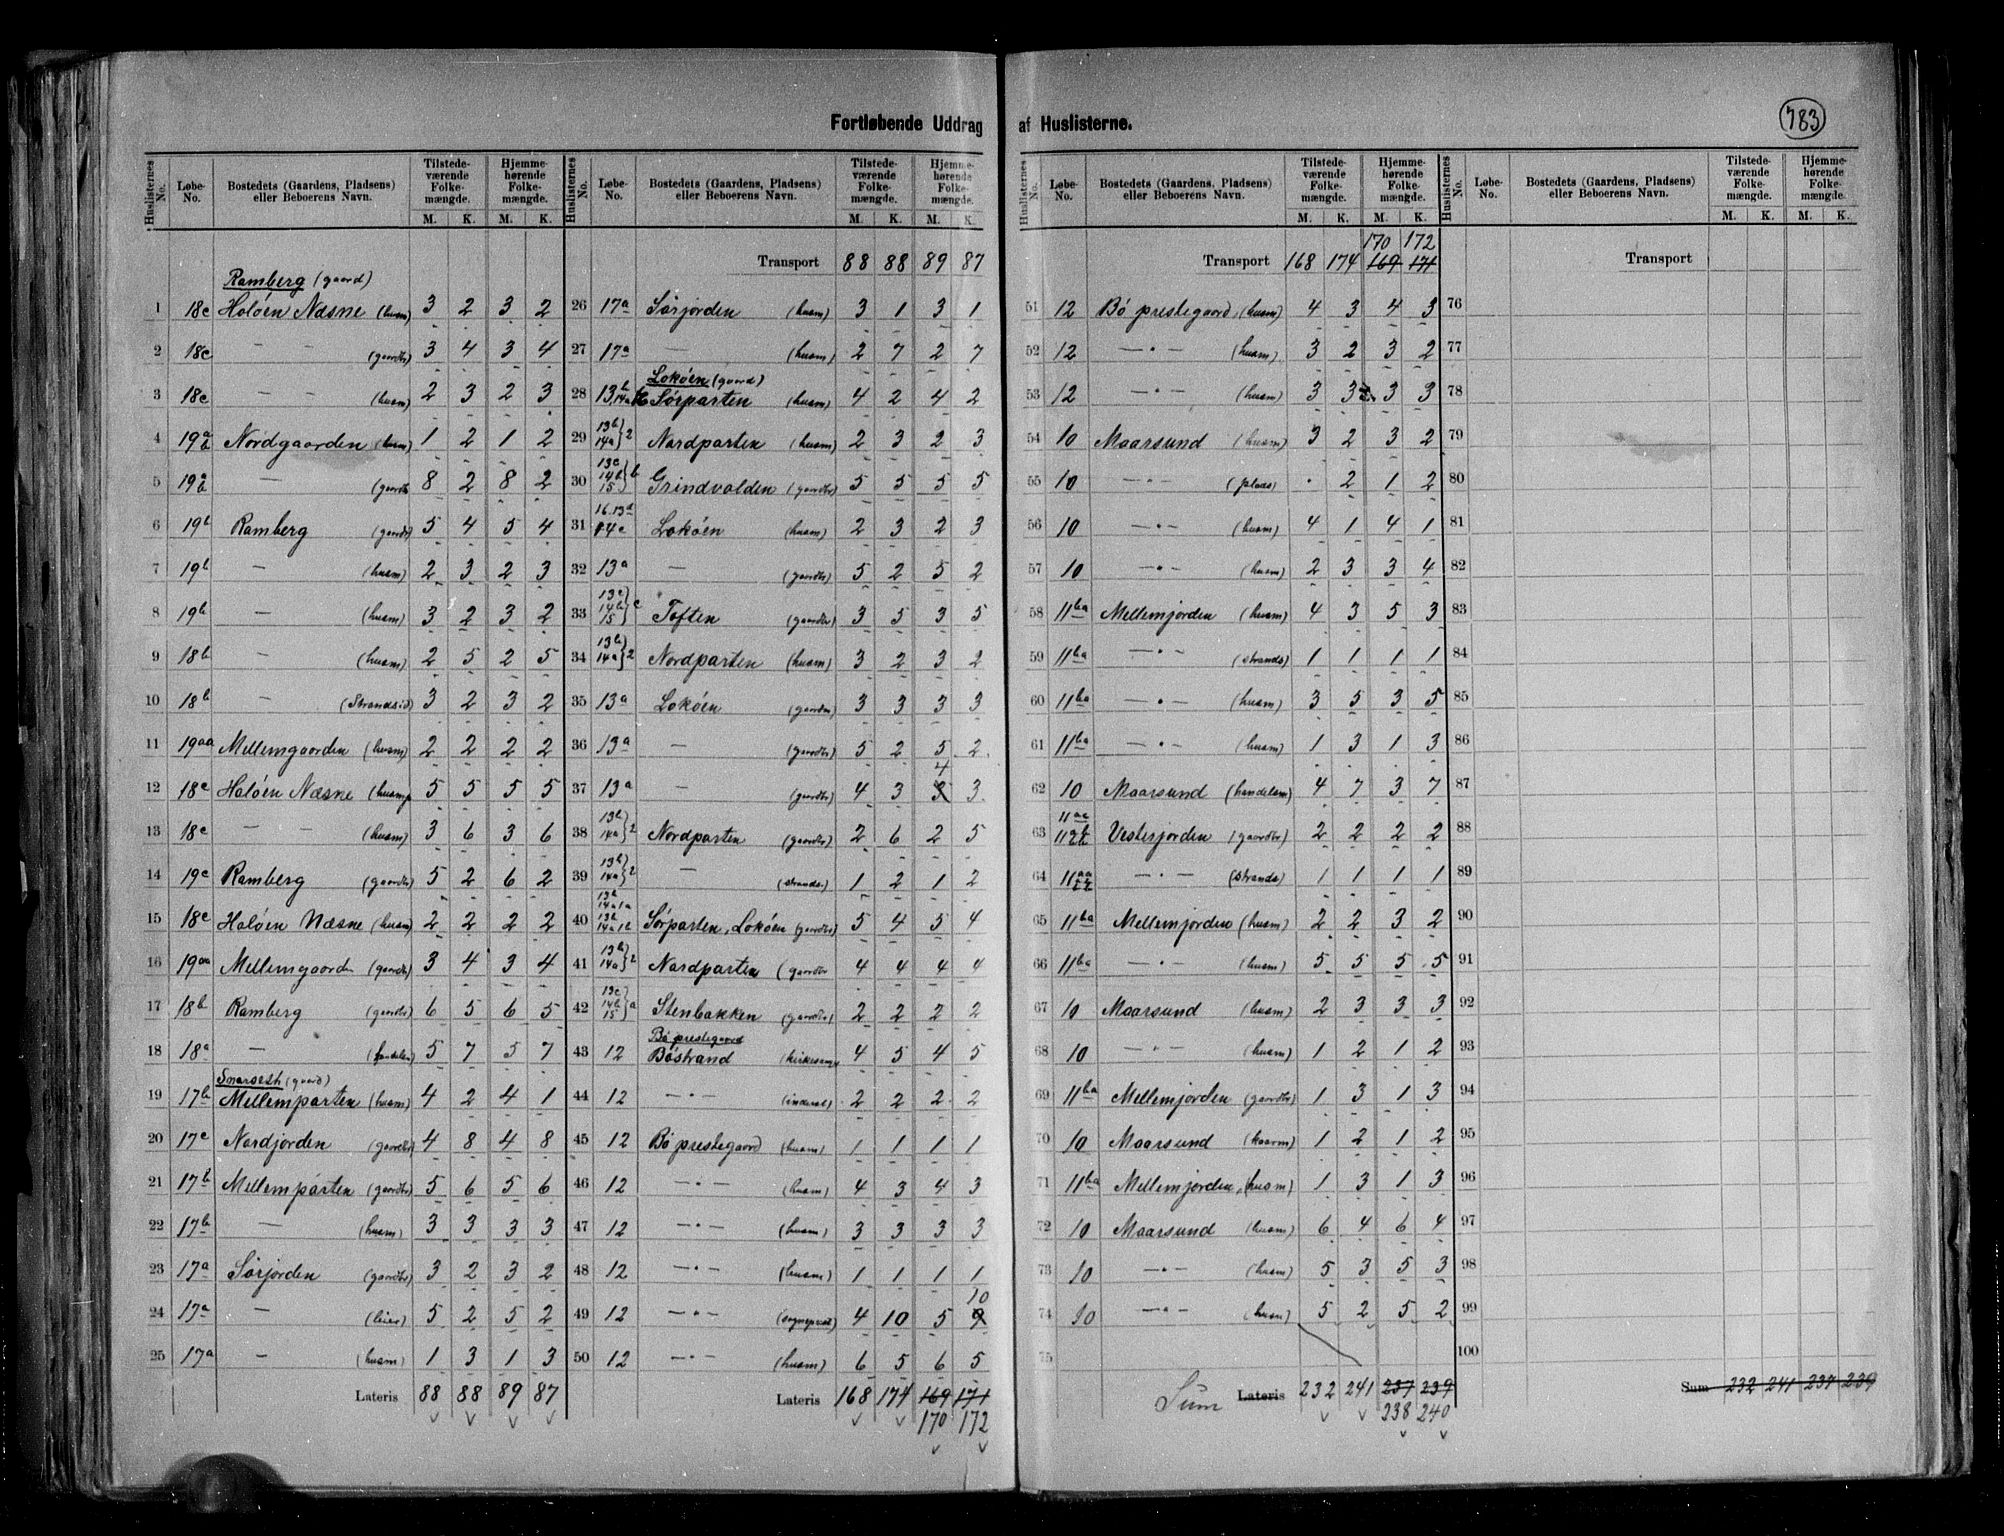 Fortløbende Uddrag af Huslisterne.
783
Huslisternes No. Løbe-No. Bostedets (Gaardens, Pladsens) eller Beboerens Navn. Tilstedeværende Folkemængde. M. K. Hjemmehørende Folkemængde. M. K.
Ramberg (gaard)
1 18c Haløen Næsne (husm) 3 2 3 2
2 18c — — (gaardbr) 3 4 3 4
3 18c — — (husm) 2 3 2 3
4 19ab Nordgaarden (husm) 1 2 1 2
5 19ab — (gaardbr) 8 2 8 2
6 19b Ramberg (gaardbr) 5 4 5 4
7 19b — (husm) 2 3 2 3
8 19b — (husm) 3 2 3 2
9 18b — (husm) 2 5 2 5
10 18b — (Strandsid) 3 2 3 2
11 19aa Mellemgaarden (husm) 2 2 2 2
12 18c Haløen Næsne (husm) 5 5 5 5
13 18c — — (husm) 3 6 3 6
14 19c Ramberg (gaardbr) 5 2 6 2
15 18c Haløen Næsne (husm) 2 2 2 2
16 19aa Mellemgaarden (gaardb) 3 4 3 4
17 18b Ramberg (gaardbr) 6 5 6 5
18 18a — (handelsm) 5 7 5 7
Snarseth (gaard)
19 17b Mellemparten (husm) 4 2 4 1
20 17c Nordjorden (gaardbr) 4 8 4 8
21 17b Mellemparten (gaardbr) 5 6 5 6
22 17b — (husm) 3 3 3 3
23 17a Sørjorden (gaardbr) 3 2 3 2
24 17a — (leier) 5 2 5 2
25 17a — (husm) 1 3 1 3
Lateris 88 88 89 87
Huslisternes No. Løbe-No. Bostedets (Gaardens, Pladsens) eller Beboerens Navn. Tilstedeværende Folkemængde. M. K. Hjemmehørende Folkemængde. M. K.
Transport 88 88 89 87
26 17a Sørjorden (husm) 3 1 3 1
27 17a — (husm) 2 7 2 7
Lokøen (gaard)
28 13b,14a Sørparten (husm) 4 2 4 2
29 13b 14a}2 Nordparten (husm) 2 3 2 3
30 13c 14b 15}b Grindvolden (gaardbr) 5 5 5 5
31 16.13d 14c Lokøen (husm) 2 3 2 3
32 13a — (gaardbr) 5 2 5 2
33 13c 14b 15}c Toften (gaardbr) 3 5 3 5
34 13b 14a}2 Nordparten (husm) 3 2 3 2
35 13a Lokøen (gaardm) 3 3 3 3
36 13a — (gaardbr) 5 2 5 2
37 13a — (gaardbr) 4 3 3 4 3
38 13b 14a}2 Nordparten (gaardbr) 2 6 2 5
39 13b 14a}2 — (strands.) 1 2 1 2
40 13b 14a1a 13b 14a1b Sørparten, Lokøen (gaardbr) 5 4 5 4
41 13b 14a}2 Nordparten (gaardbr 4 4 4 4
42 13c 14b 15}a Stenbakken (gaardbr) 2 2 2 2
Bø prestegaard
43 12 Bøstrand (kirkesang 4 5 4 5
44 12 —"— (inderst) 2 2 2 2
45 12 Bø prestegaard (husm) 1 1 1 1
46 12 —"— (husm) 4 3 4 3
47 12 —"— (husm) 3 3 3 3
48 12 —"— (husm) 1 1 1 1
49 12 —"— (sognepræst) 4 10 5 9 10
50 12 —"— (husm) 6 5 6 5
Lateris 168 174 169 171
170 172
Huslisternes No. Løbe-No. Bostedets (Gaardens, Pladsens) eller Beboerens Navn. Tilstedeværende Folkemængde. M. K. Hjemmehørende Folkemængde. M. K.
170 172
Transport 168 174 169 171
51 12 Bø prestegaard (husm) 4 3 4 3
52 12 —"— (husm) 3 2 3 2
53 12 —"— (husm) 3 3 3 3
54 10 Maarsund (husm) 3 2 3 2
55 10 —"— (plads) · 2 1 2
56 10 —"— (husm) 4 1 4 1
57 10 —"— (husm) 2 3 3 4
58 11ba Mellemjorden (husm) 4 3 5 3
59 11ba —"— (strands) 1 1 1 1
60 11ba —"— (husm) 3 5 3 5
61 11ba —"— (husm) 1 3 1 3
62 10 Maarsund (handelsm) 4 7 3 7
63 Vesterjorden (gaardbr) 2 2 2 2
64 —"— (strands) 1 1 1 1
65 11ba Mellemjorden (husm) 2 2 3 2
66 11ba —"— (husm) 5 5 5 5
67 10 Maarsund (husm) 2 3 3 3
68 10 —"— (husm) 1 2 1 2
69 11ba Mellemjorden (gaardbr) 1 3 1 3
70 10 Maarsund (kaarm) 1 2 1 2
71 11ba Mellemjorden (husm) 1 3 1 3
72 10 Maarsund (husm) 6 4 6 4
73 10 —"— (husm) 5 3 5 3
74 10 —"— (husm) 5 2 5 2
75
Sum Lateris 232 241 237 239
238 240
Huslisternes No. Løbe-No. Bostedets (Gaardens, Pladsens) eller Beboerens Navn. Tilstedeværende Folkemængde. M. K. Hjemmehørende Folkemængde. M. K.
Transport
76
77
78
79
80
81
82
83
84
85
86
87
88
89
90
91
92
93
94
95
96
97
98
99
100
Sum 232 241 237 239